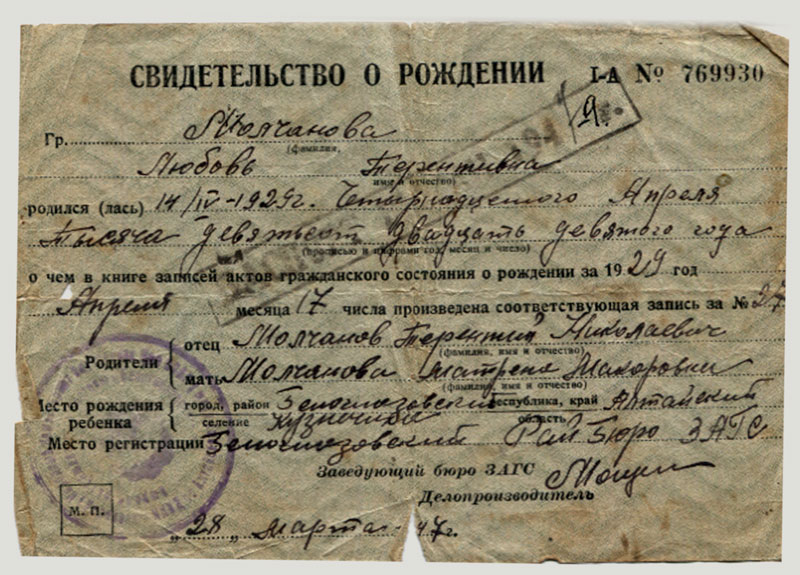 СВИДЕТЕЛЬСТВО О РОЖДЕНИИ I-А № 769930
Гр. Молчанова
(фамилия,
Любовь Терентивна
имя и отчество)
родился (лась) 14/IV-1929г. Четырнадцатого Апреля
Тысяча девятьсот двадцать девятого года
(прописью и цифрами год, месяц и число)
о чем в книге записей актов гражданского состояния о рождении за 1929 год
Апреля месяца 17 числа произведена соответствующая запись за № 27
Родители
отец Молчанов Терентий Николаевич
(фамилия, имя и отчество)
мать Молчанова Матрена Макаровна
(фамилия, имя и отчество)
Место рождения ребенка
город, район Белоглазовский республика, край Алтайский
селение область
Место регистрации Белоглазовский Рай Бюро ЗАГС
Заведующий бюро ЗАГС
Делопроизводитель
М. П.
„28„ марта 47г.